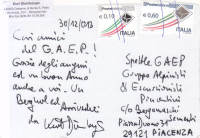 Kurt Diemberger
30/12/013
€0,10
ITALIA
€0,60
ITALIA
Cari amici
del G.A.E.P.!
Grazie degli auguri
ed un buon Anno
anche a voi. Un
Bergheil ed Arrivederci
da Kurt Diemberger
Spett.le GAEP
Gruppo Alpinisti
& Escursionisti
Piacentini
c/o Bergamaschi
29121 PIACENZA